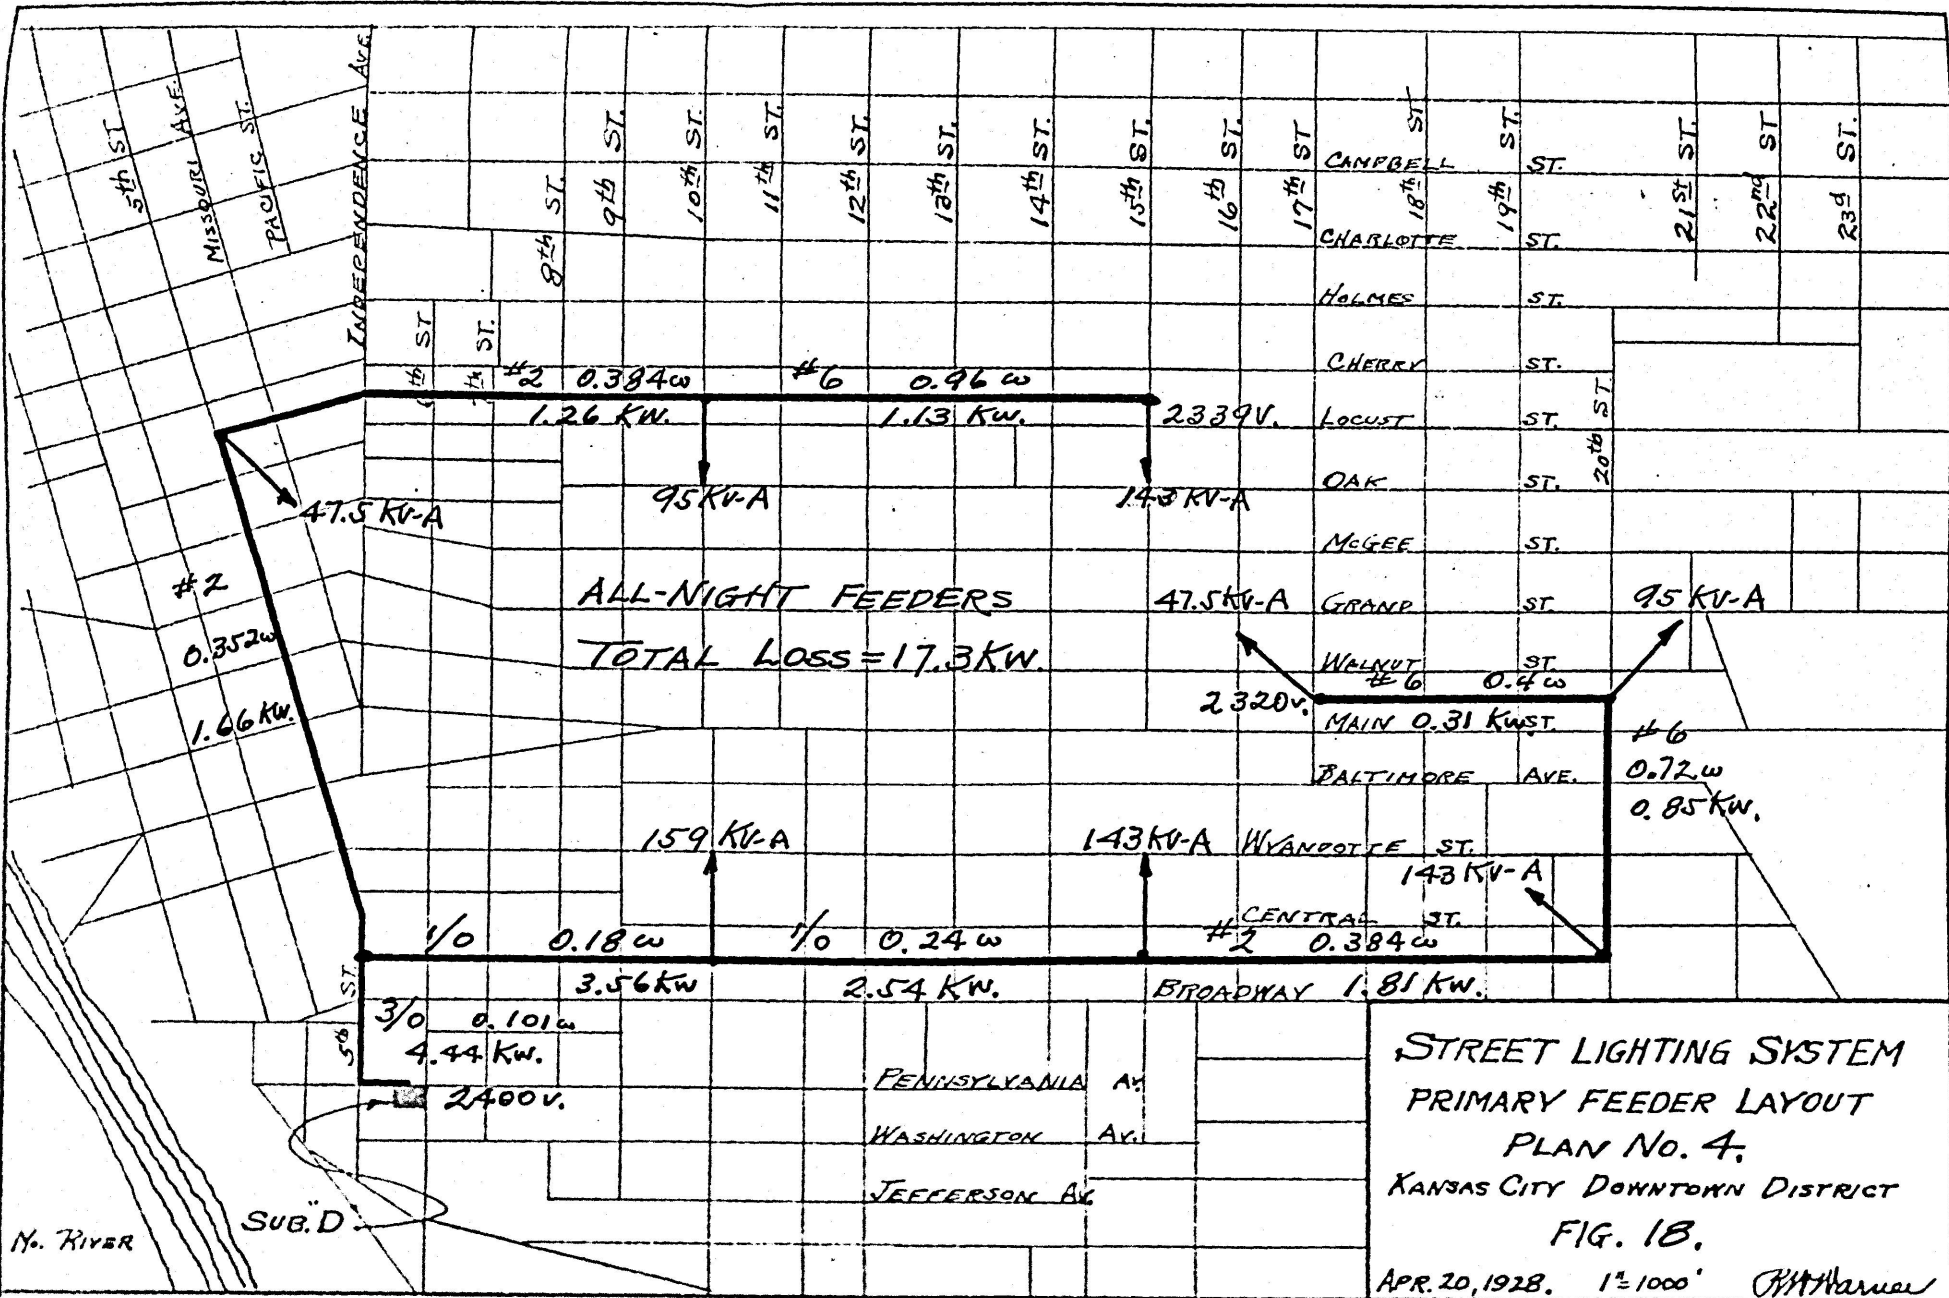 5th ST
MISSOURI AVE.
PACIFIC ST.
INDEPENDENCE AVE.
6th ST
7th ST.
8th ST.
9th ST.
10th ST.
11th ST.
12th ST.
13th ST.
14th ST.
15th ST.
16th ST.
17th ST
18th ST
19th ST.
20th ST
21st ST.
22nd ST
23d ST.
CAMPBELL ST.
CHARLOTTE ST.
HOLMES ST.
CHERRY ST.
LOCUST ST.
OAK ST.
McGEE ST.
GRAND ST
WALNUT ST.
MAIN ST.
BALTIMORE AVE.
WYANDOTTE ST.
CENTRAL ST.
BROADWAY
PENNSYLVANIA AV
WASHINGTON AV.
JEFFERSON AV.
#2 0.384ω
1.26 KW.
#6 0.96 ω
1.13 KW.
2339V.
47.5 KV-A
95 KV-A
143 KV-A
#2
0.352ω
1.66 KW.
ALL-NIGHT FEEDERS
TOTAL LOSS = 17.3 KW.
47.5 KV-A
95 KV-A
2320V.
#6 0.4 ω
0.31 KW
#6
0.72 ω
0.85 KW.
159 KV-A
143 KV-A
143 KV-A
1/0 0.18 ω
3.56 KW
1/0 0.24 ω
2.54 KW.
#2 0.384 ω
1.81 KW.
5th ST.
3/0 0.101 ω
4.44 KW.
2400 V.
SUB."D"
Mo. RIVER
STREET LIGHTING SYSTEM
PRIMARY FEEDER LAYOUT
PLAN No. 4.
KANSAS CITY DOWNTOWN DISTRICT
FIG. 18.
APR. 20, 1928. 1"=1000'